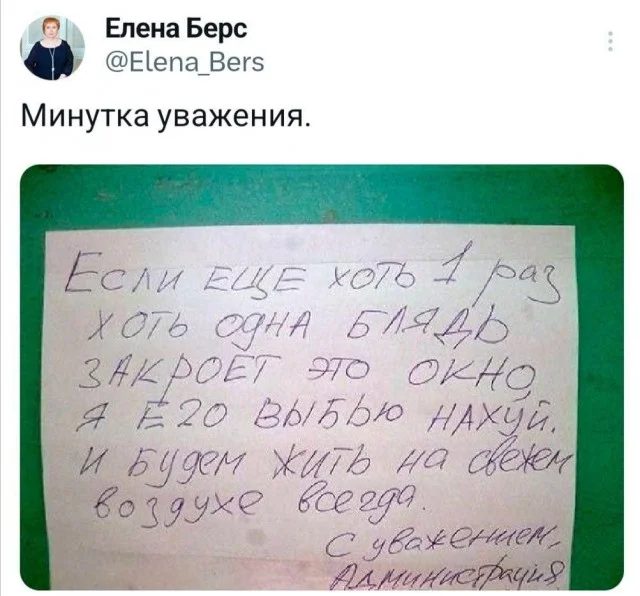 Елена Берс
@Elena_Bers
Минутка уважения.
Если ЕЩЕ хоть 1 раз
хоть одна БЛЯДЬ
ЗАКРОЕТ это ОКНО,
я ЕГО ВЫБЬЮ НАХУЙ.
И Будем ЖИТЬ на свежем
воздухе всегда.
С уважением,
Администрация